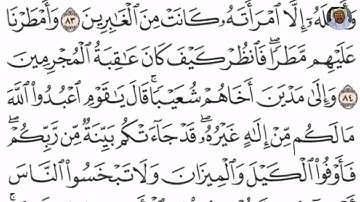 وَأَهْلَهُۥٓ إِلَّا ٱمْرَأَتَهُۥ كَانَتْ مِنَ ٱلْغَٰبِرِينَ ٨٣ وَأَمْطَرْنَا
عَلَيْهِم مَّطَرًا ۖ فَٱنظُرْ كَيْفَ كَانَ عَٰقِبَةُ ٱلْمُجْرِمِينَ
٨٤ وَإِلَىٰ مَدْيَنَ أَخَاهُمْ شُعَيْبًا ۗ قَالَ يَٰقَوْمِ ٱعْبُدُوا۟ ٱللَّهَ
مَا لَكُم مِّنْ إِلَٰهٍ غَيْرُهُۥ ۖ قَدْ جَآءَتْكُم بَيِّنَةٌ مِّن رَّبِّكُمْ ۖ
فَأَوْفُوا۟ ٱلْكَيْلَ وَٱلْمِيزَانَ وَلَا تَبْخَسُوا۟ ٱلنَّاسَ